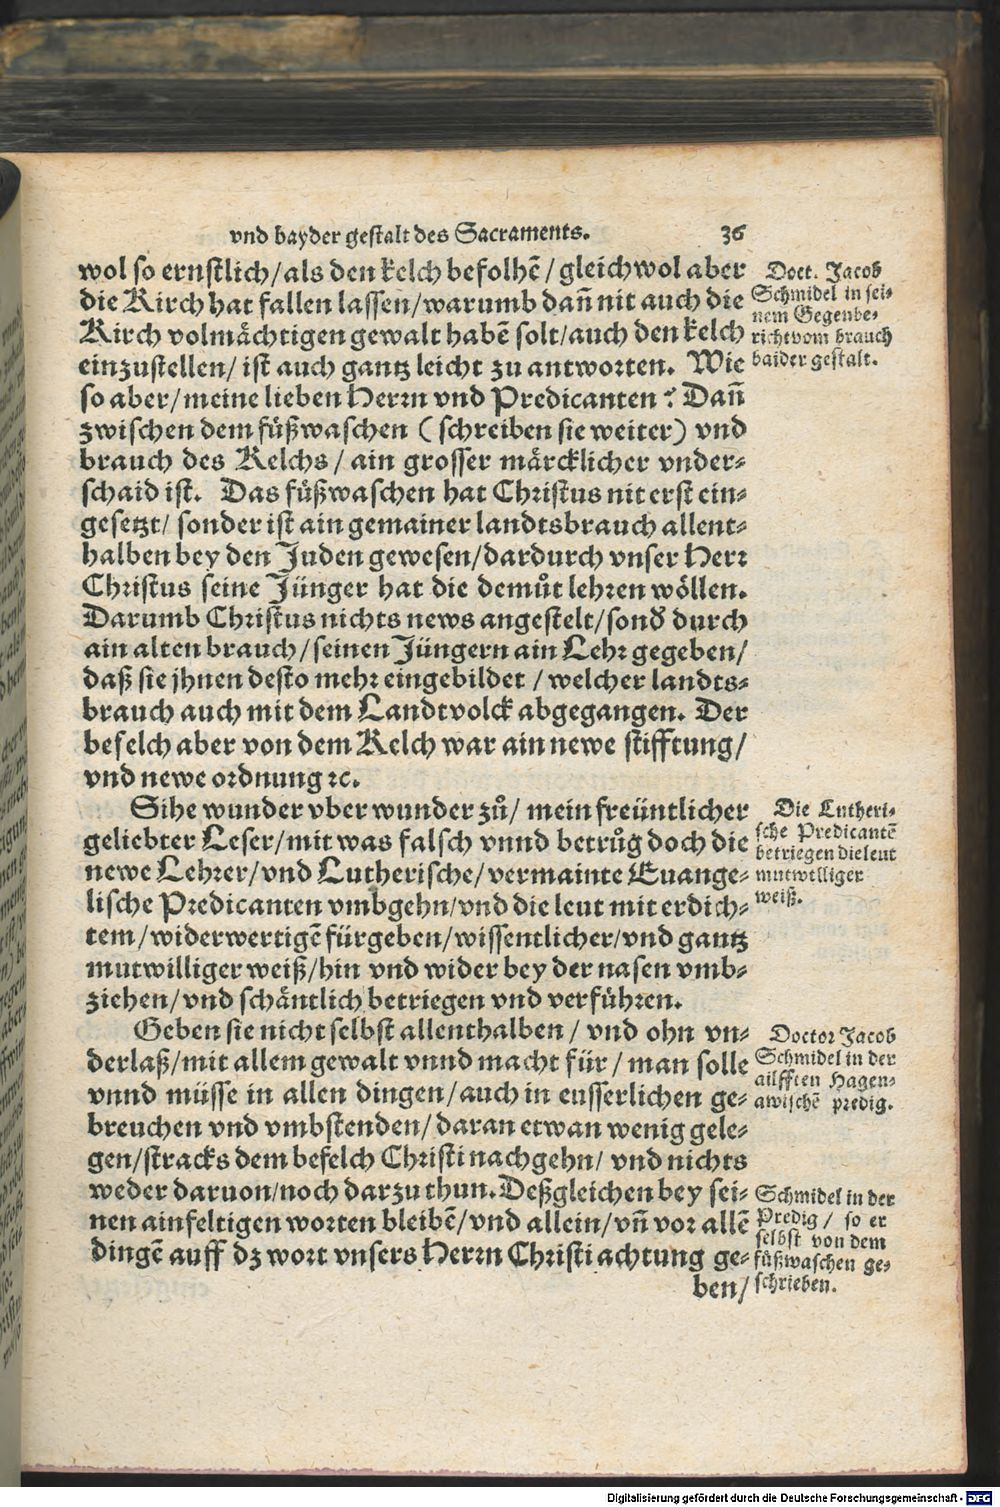 vnd bayder gestalt des Sacraments. 36
wol so ernstlich/als den kelch befolhẽ/gleichwol aber
die Kirch hat fallen lassen/warumb dañ nit auch die
Kirch volmächtigen gewalt habẽ solt/auch den kelch
einzustellen/ ist auch gantz leicht zu antworten. Wie
so aber/meine lieben Herrn vnd Predicanten? Dañ
zwischen dem füßwaschen (schreiben sie weiter) vnd
brauch des Kelchs/ ain grosser märcklicher vnder-
schaid ist. Das füßwaschen hat Christus nit erst ein-
gesetzt/ sonder ist ain gemainer landtsbrauch allent-
halben bey den Juden gewesen/dardurch vnser Herr
Christus seine Jünger hat die demůt lehren wöllen.
Darumb Christus nichts news angestelt/sonď durch
ain alten brauch/seinen Jüngern ain Lehr gegeben/
daß sie jhnen desto mehr eingebildet/welcher landts-
brauch auch mit dem Landtvolck abgegangen. Der
befelch aber von dem Kelch war ain newe stifftung/
vnd newe ordnung ꝛc.
Sihe wunder vber wunder zů/ mein freüntlicher
geliebter Leser/mit was falsch vnnd betrůg doch die
newe Lehrer/vnd Lutherische/vermainte Euange-
lische Predicanten vmbgehn/vnd die leut mit erdich-
tem/widerwertigẽ fürgeben/wissentlicher/vnd gantz
mutwilliger weiß/hin vnd wider bey der nasen vmb-
ziehen/vnd schäntlich betriegen vnd verführen.
Geben sie nicht selbst allenthalben/ vnd ohn vn-
derlaß/mit allem gewalt vnnd macht für/ man solle
vnnd müsse in allen dingen/auch in eusserlichen ge-
breuchen vnd vmbstenden/daran etwan wenig gele-
gen/stracks dem befelch Christi nachgehn/ vnd nichts
weder daruon/noch darzu thun. Deßgleichen bey sei-
nen ainfeltigen worten bleibẽ/vnd allein/vñ vor allẽ
dingẽ auff dz wort vnsers Herrn Christi achtung ge-
ben/
Doct. Jacob
Schmidel in sei-
nem Gegenbe-
richt vom brauch
baider gestalt.
Die Lutheri-
sche Predicantẽ
betriegen die leut
mutwilliger
weiß.
Doctor Jacob
Schmidel in der
ailfften Hagen-
awischẽ predig.
Schmidel in der
Predig/ so er
selbst von dem
füßwaschen ge-
schrieben.
Digitalisierung gefördert durch die Deutsche Forschungsgemeinschaft - DFG